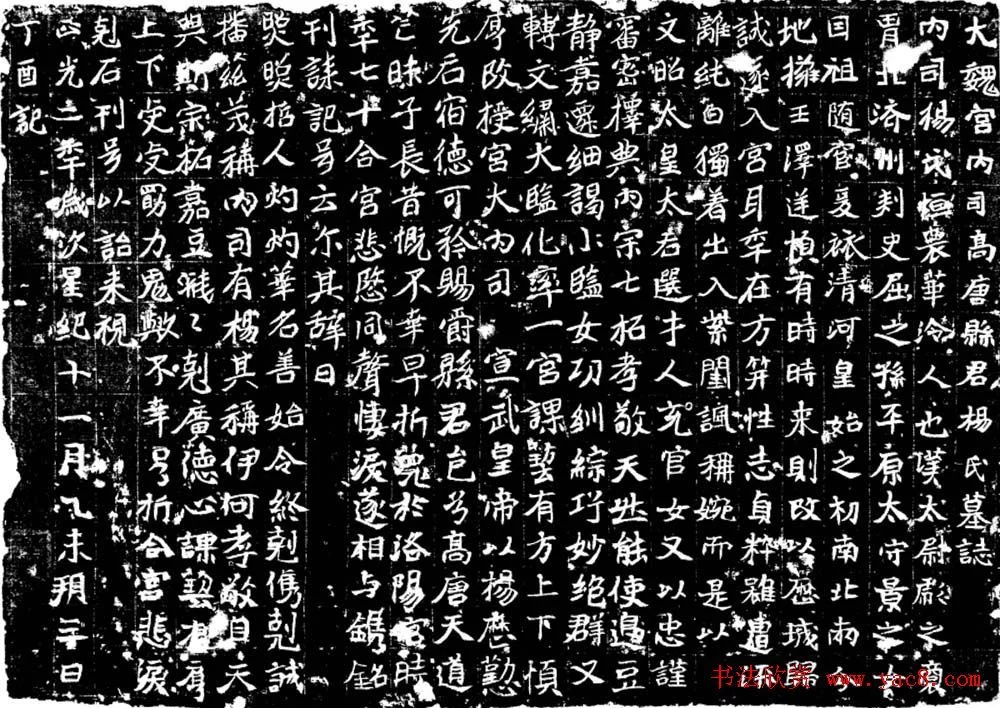 大魏宮內司高唐縣君楊氏墓誌
內司楊氏恒農華泠人也漢太尉彪之裔
胄北濟州刾史屈之孫平原太守景之女
因祖隨宦爰旅清河皇始之初南北兩分
地擁王澤逆順有時時来則改以歷城歸
誠遂入宮耳年在方笄性志貞粹雖遭流
離純白獨著出入紫閨諷稱婉而是以
文昭太皇太后選才人充官女又以忠謹
審密擇典內宗七祏孝敬天然能使邉豆
静嘉遷細謁小監女功紃綜巧妙絶群又
轉文繡大監化率一宮課藝有方上下順
厚改授宮大內司 宣武皇帝以楊歷勤
先后宿德可矜賜爵縣君邑兮高唐天道
茫昧子長昔慨不幸早折薨於洛陽宮時
年七十合宮悲慜同聲悽淚遂相与鐫銘
刊誄記号云尔其辞曰
煚煚挺人灼灼華名善始令終剋儁剋誠
播兹茂稱內司有楊其稱伊何孝敬自天
典斯宗祏嘉豆濈〻剋廣德心課藝有肓
上下安安罰力鬼歟不幸号折合宮悲淚
剋石刊号以詒来視
正光二年歲次星紀十一月乙未朔三日
丁酉記
书法欣赏 www.yac8.com